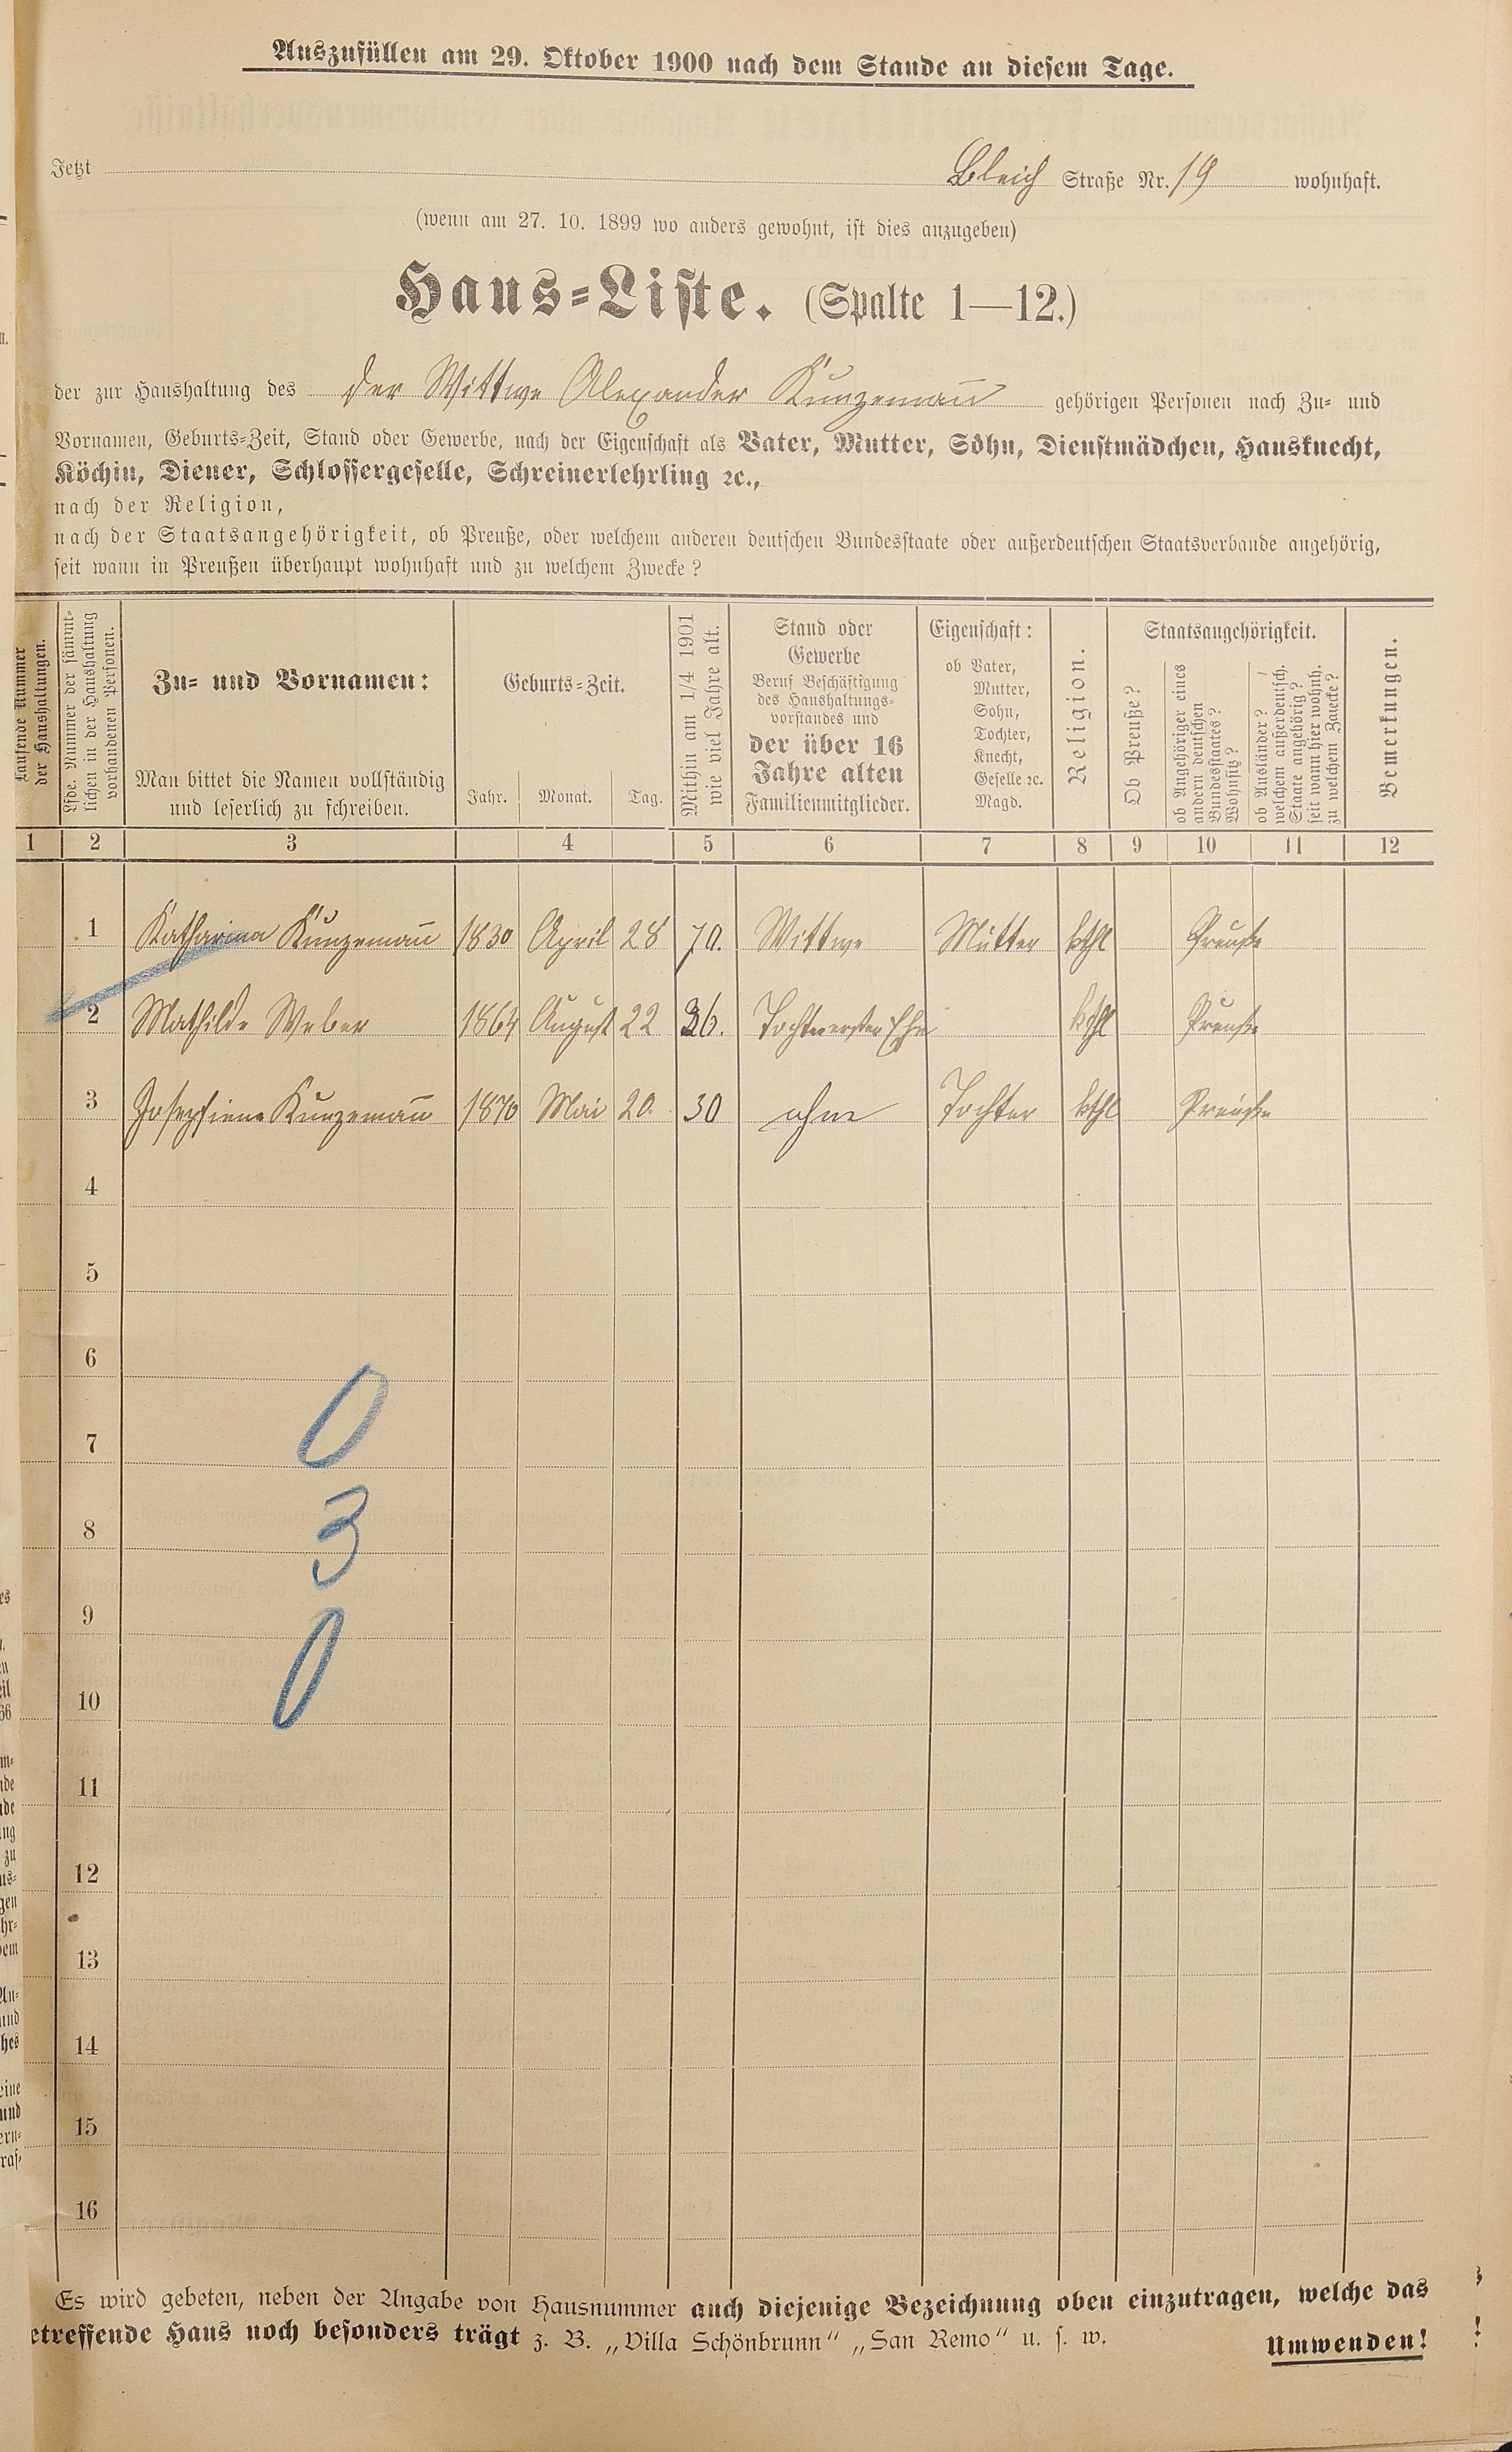 Auszufüllen am 29. Oktober 1900 nach dem Stande an diesem Tage.
Jetzt Bleich Straße Nr. 19 wohnhaft.
(wenn am 27. 10. 1899 wo anders gewohnt, ist dies anzugeben)
Haus-Liste. (Spalte 1—12.)
der zur Haushaltung des der Wittwe Alexander Kunzemañ gehörigen Personen nach Zu- und
Vornamen, Geburts-Zeit, Stand oder Gewerbe, nach der Eigenschaft als Vater, Mutter, Sohn, Dienstmädchen, Hausknecht,
Köchin, Diener, Schlossergeselle, Schreinerlehrling ꝛc.,
nach der Religion,
nach der Staatsangehörigkeit, ob Preuße, oder welchem anderen deutschen Bundesstaate oder außerdeutschen Staatsverbande angehörig,
seit wann in Preußen überhaupt wohnhaft und zu welchem Zwecke?
Laufende Nummer
der Haushaltungen.
Lfde. Nummer der sämmt-
lichen in der Haushaltung
vorhandenen Personen.
Zu- und Vornamen:
Man bittet die Namen vollständig
und leserlich zu schreiben.
Geburts-Zeit.
Jahr. Monat. Tag.
Mithin am 1/4 1901
wie viel Jahre alt.
Stand oder
Gewerbe
Beruf Beschäftigung
des Haushaltungs-
vorstandes und
der über 16
Jahre alten
Familienmitglieder.
Eigenschaft:
ob Vater,
Mutter,
Sohn,
Tochter,
Knecht,
Geselle ꝛc.
Magd.
Religion.
Staatsangehörigkeit.
Ob Preuße?
ob Angehöriger eines
andern deutschen
Bundesstaates?
Wohnsitz?
ob Ausländer?
welchem außerdeutsch.
Staate angehörig?
seit wann hier wohnh.
zu welchem Zwecke?
Bemerkungen.
1 2 3 4 5 6 7 8 9 10 11 12
1 Katharina Kunzemañ 1830 April 28 70. Wittwe Mutter kthl Preuße
2 Mathilde Weber 1864 August 22 36. Tochter erster Ehe kthl Preuße
3 Josephiene Kunzemañ 1870 Mai 20. 30 ohne Tochter kthl Preuße
4
5
6
0
7
3
8
9
0
10
11
12
13
14
15
16
Es wird gebeten, neben der Angabe von Hausnummer auch diejenige Bezeichnung oben einzutragen, welche das
etreffende Haus noch besonders trägt z. B. „Villa Schönbrunn“ „San Remo“ u. s. w.
Umwenden!